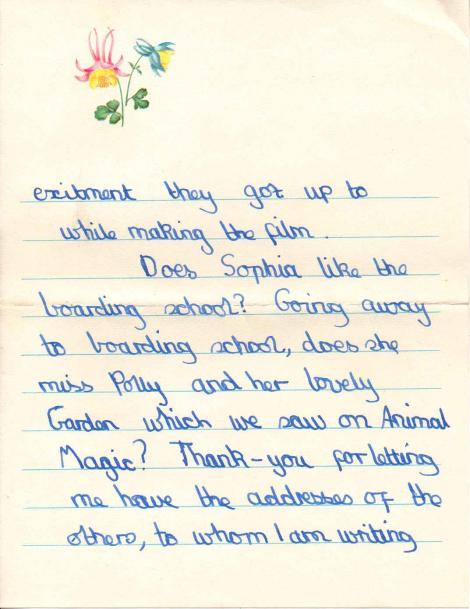 excitment they got up to
while making the film.
Does Sophia like the
boarding school? Going away
to boarding school, does she
miss Polly and her lovely
Garden which we saw on Animal
Magic? Thank-you for letting
me have the addresses of the
others, to whom I am writing